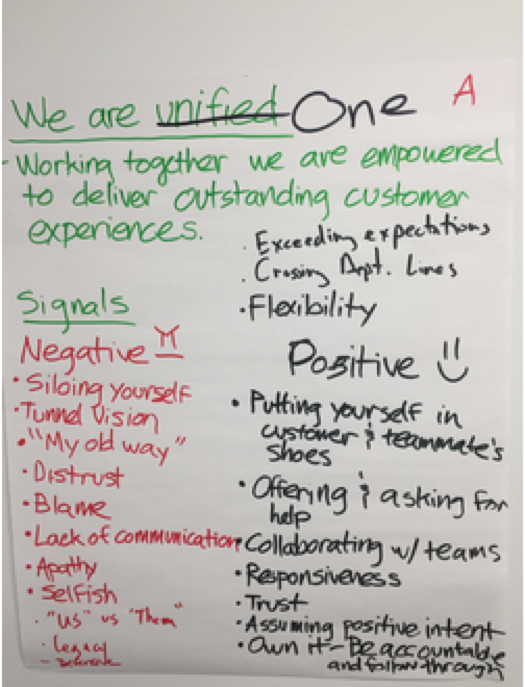 We are unified One
A
- Working together we are empowered
to deliver outstanding customer
experiences.
. Exceeding expectations
. Crossing Dept. Lines
• Flexibility
Signals
Negative
• Siloing yourself
• Tunnel Vision
• "My old way"
• Distrust
• Blame
• Lack of communication
• Apathy
• Selfish
- "US" vs "Them"
• Legacy
Positive
• Putting yourself in
customer & teammate's
shoes
• Offering & asking for
help
• Collaborating w/ teams
• Responsiveness
• Trust
• Assuming positive intent
• Own it - Be accountable
and follow through